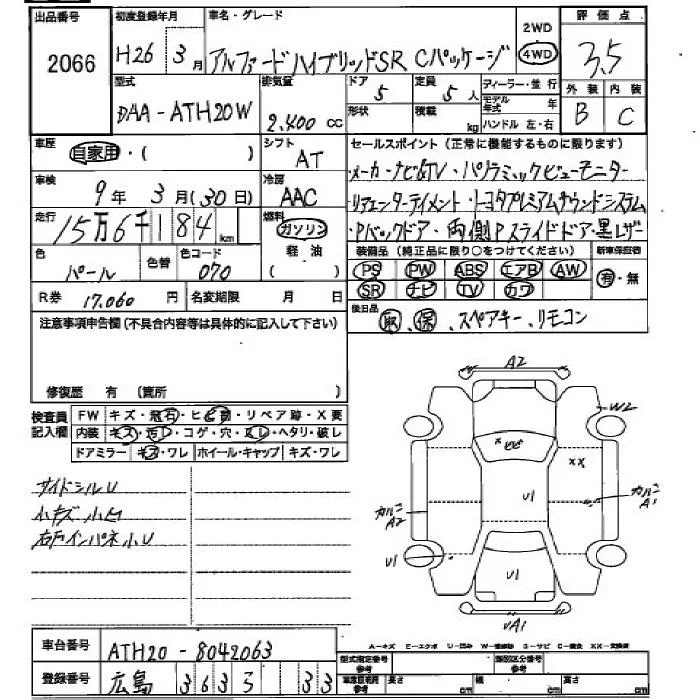 出品番号 初度登録年月 車名・グレード 2WD 評価点
2066 H26年 3月 アルファードハイブリッドSR Cパッケージ 4WD 3.5
型式 排気量 ドア 5 定員 5人 ディーラー・並行 外装 内装
DAA-ATH20W 2,400cc 形状 積載 kg モデル年式 年 B C
ハンドル 左・右
車歴 自家用・( ) シフト AT セールスポイント (正常に機能するものに限ります)
メーカーナビ&TV・パノラミックビューモニター
車検 9年 3月(30日) 冷房 AAC リアエンターテイメント・トヨタプレミアムサウンドシステム
走行 15万6千184km 燃料 ガソリン Pバックドア・両側Pスライドドア・黒レザー
軽油 装備品 (純正品に限り○をつけてください) 新車保証書
色 パール 色替 色コード 070 ( ) PS PW ABS エアB AW 有・無
R券 17,060円 名変期限 月 日 SR ナビ TV カワ
注意事項申告欄 (不具合内容等は具体的に記入して下さい) 後日品 取、保、スペアキー、リモコン
修復歴 有 〔箇所 〕
検査員記入欄 FW キズ・飛石・ヒビ・リペア跡・X要
内装 キズ・汚レ・コゲ・穴・スレ・ヘタリ・破レ
ドアミラー キズ・ワレ ホイール・キャップ キズ・ワレ
サイドシルU
小キズ小凹
右戸インパネ小U
A2
W2
XX
U1
カルニA2
カルニA1
U1
U1
UA1
A-キズ E-エクボ U-凹み W-補修跡 S-サビ C-腐食 XX-交換済
車台番号 ATH20-8042063 型式指定番号参考 類別区分番号参考
登録番号 広島 363 33 長さ cm 幅 cm 高さ cm